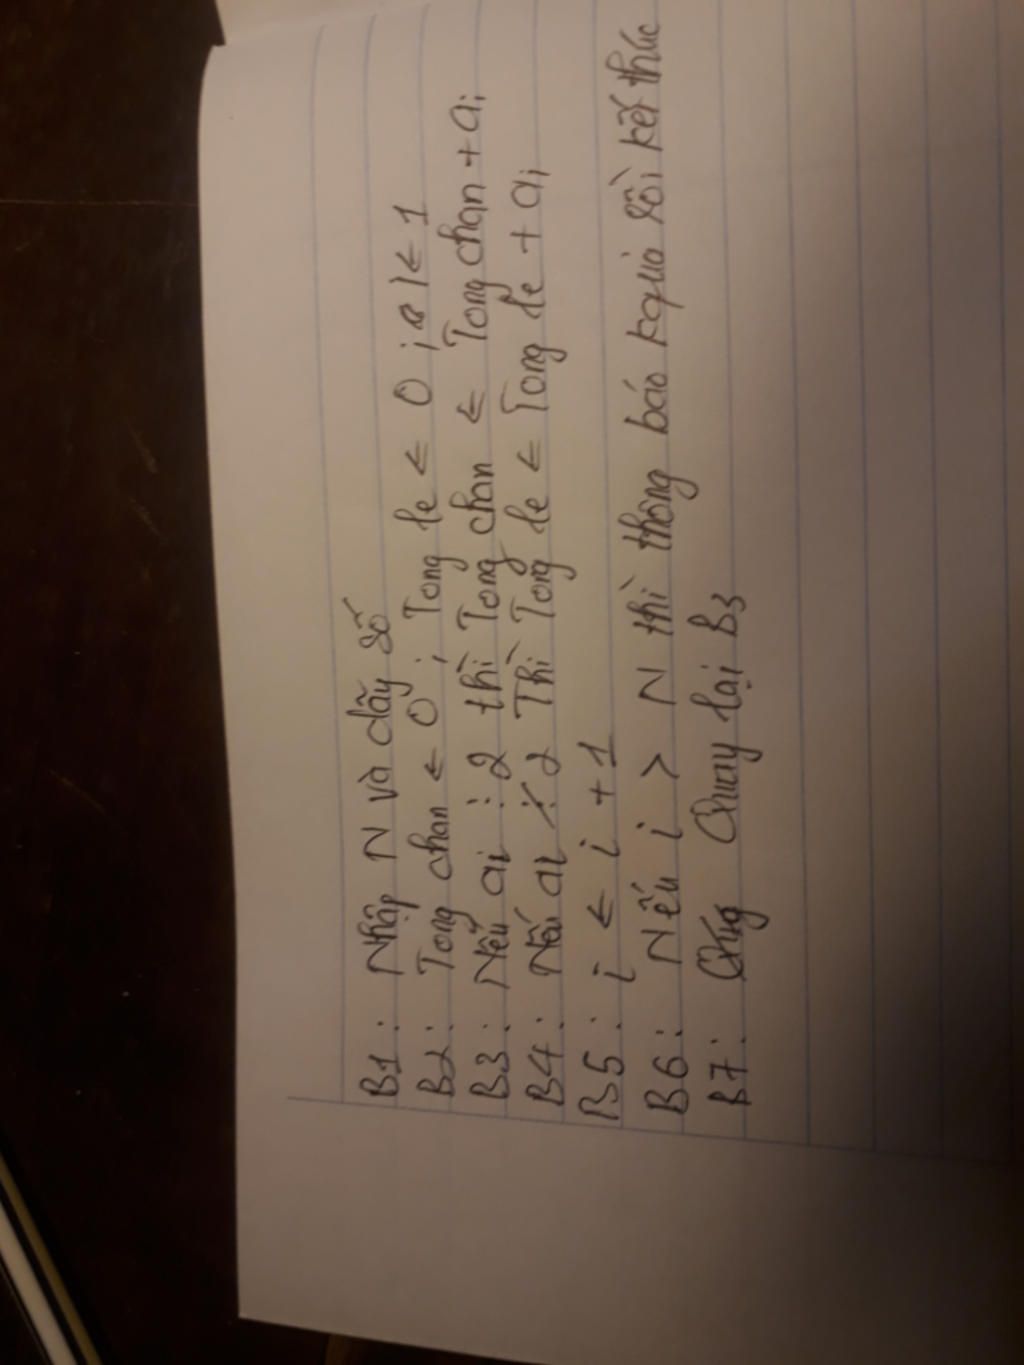 B1: Nhập N và dãy số
B2: Tong chan ← 0; Tong le ← 0; i ← 1
B3: Nếu ai ⋮ 2 thì Tong chan ← Tong chan + ai
B4: Nếu ai ⋮̸ 2 Thì Tong le ← Tong le + ai
B5: i ← i + 1
B6: Nếu i > N thì thông báo kquả rồi kết thúc
B7: Quay lại B3